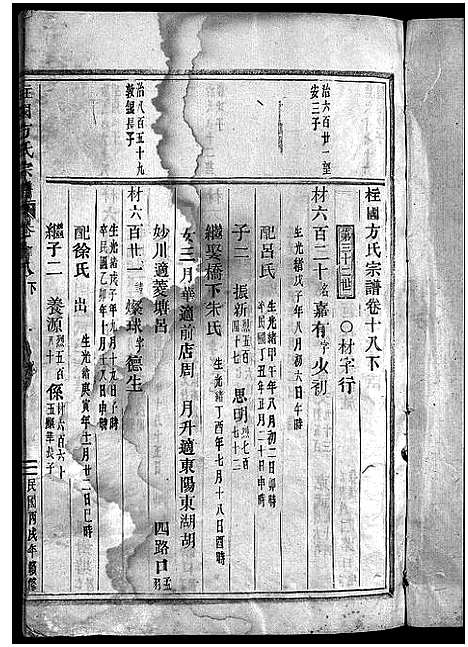 柱國方氏宗譜卷十八下
第三十二世 〇材字行
治六百廿一望安三子
材六百二十名嘉有字少初
生光緒戊子年八月初六日午時
配呂氏 生光緒甲午年八月初二日卯時
民國丁丑年五月二十日午時
子二 振新 思明 烈七百七十二
繼娶橋下朱氏 生光緒丁酉年七月十八日酉時
女三月華適前店周 月升適東陽東湖胡
妙川適菱塘呂 四路口
治八百五十九敦銀長子
材六百廿一 諱燦球字德生
生光緒戊子年九月十九日子時
卒民國乙卯年十月十八日午時
配徐氏 出 生光緒庚寅年十二月廿二日巳時
繼子二 養源 烈五百 係材六百六十玉 長子
方氏宗譜
民國丙戌年續修